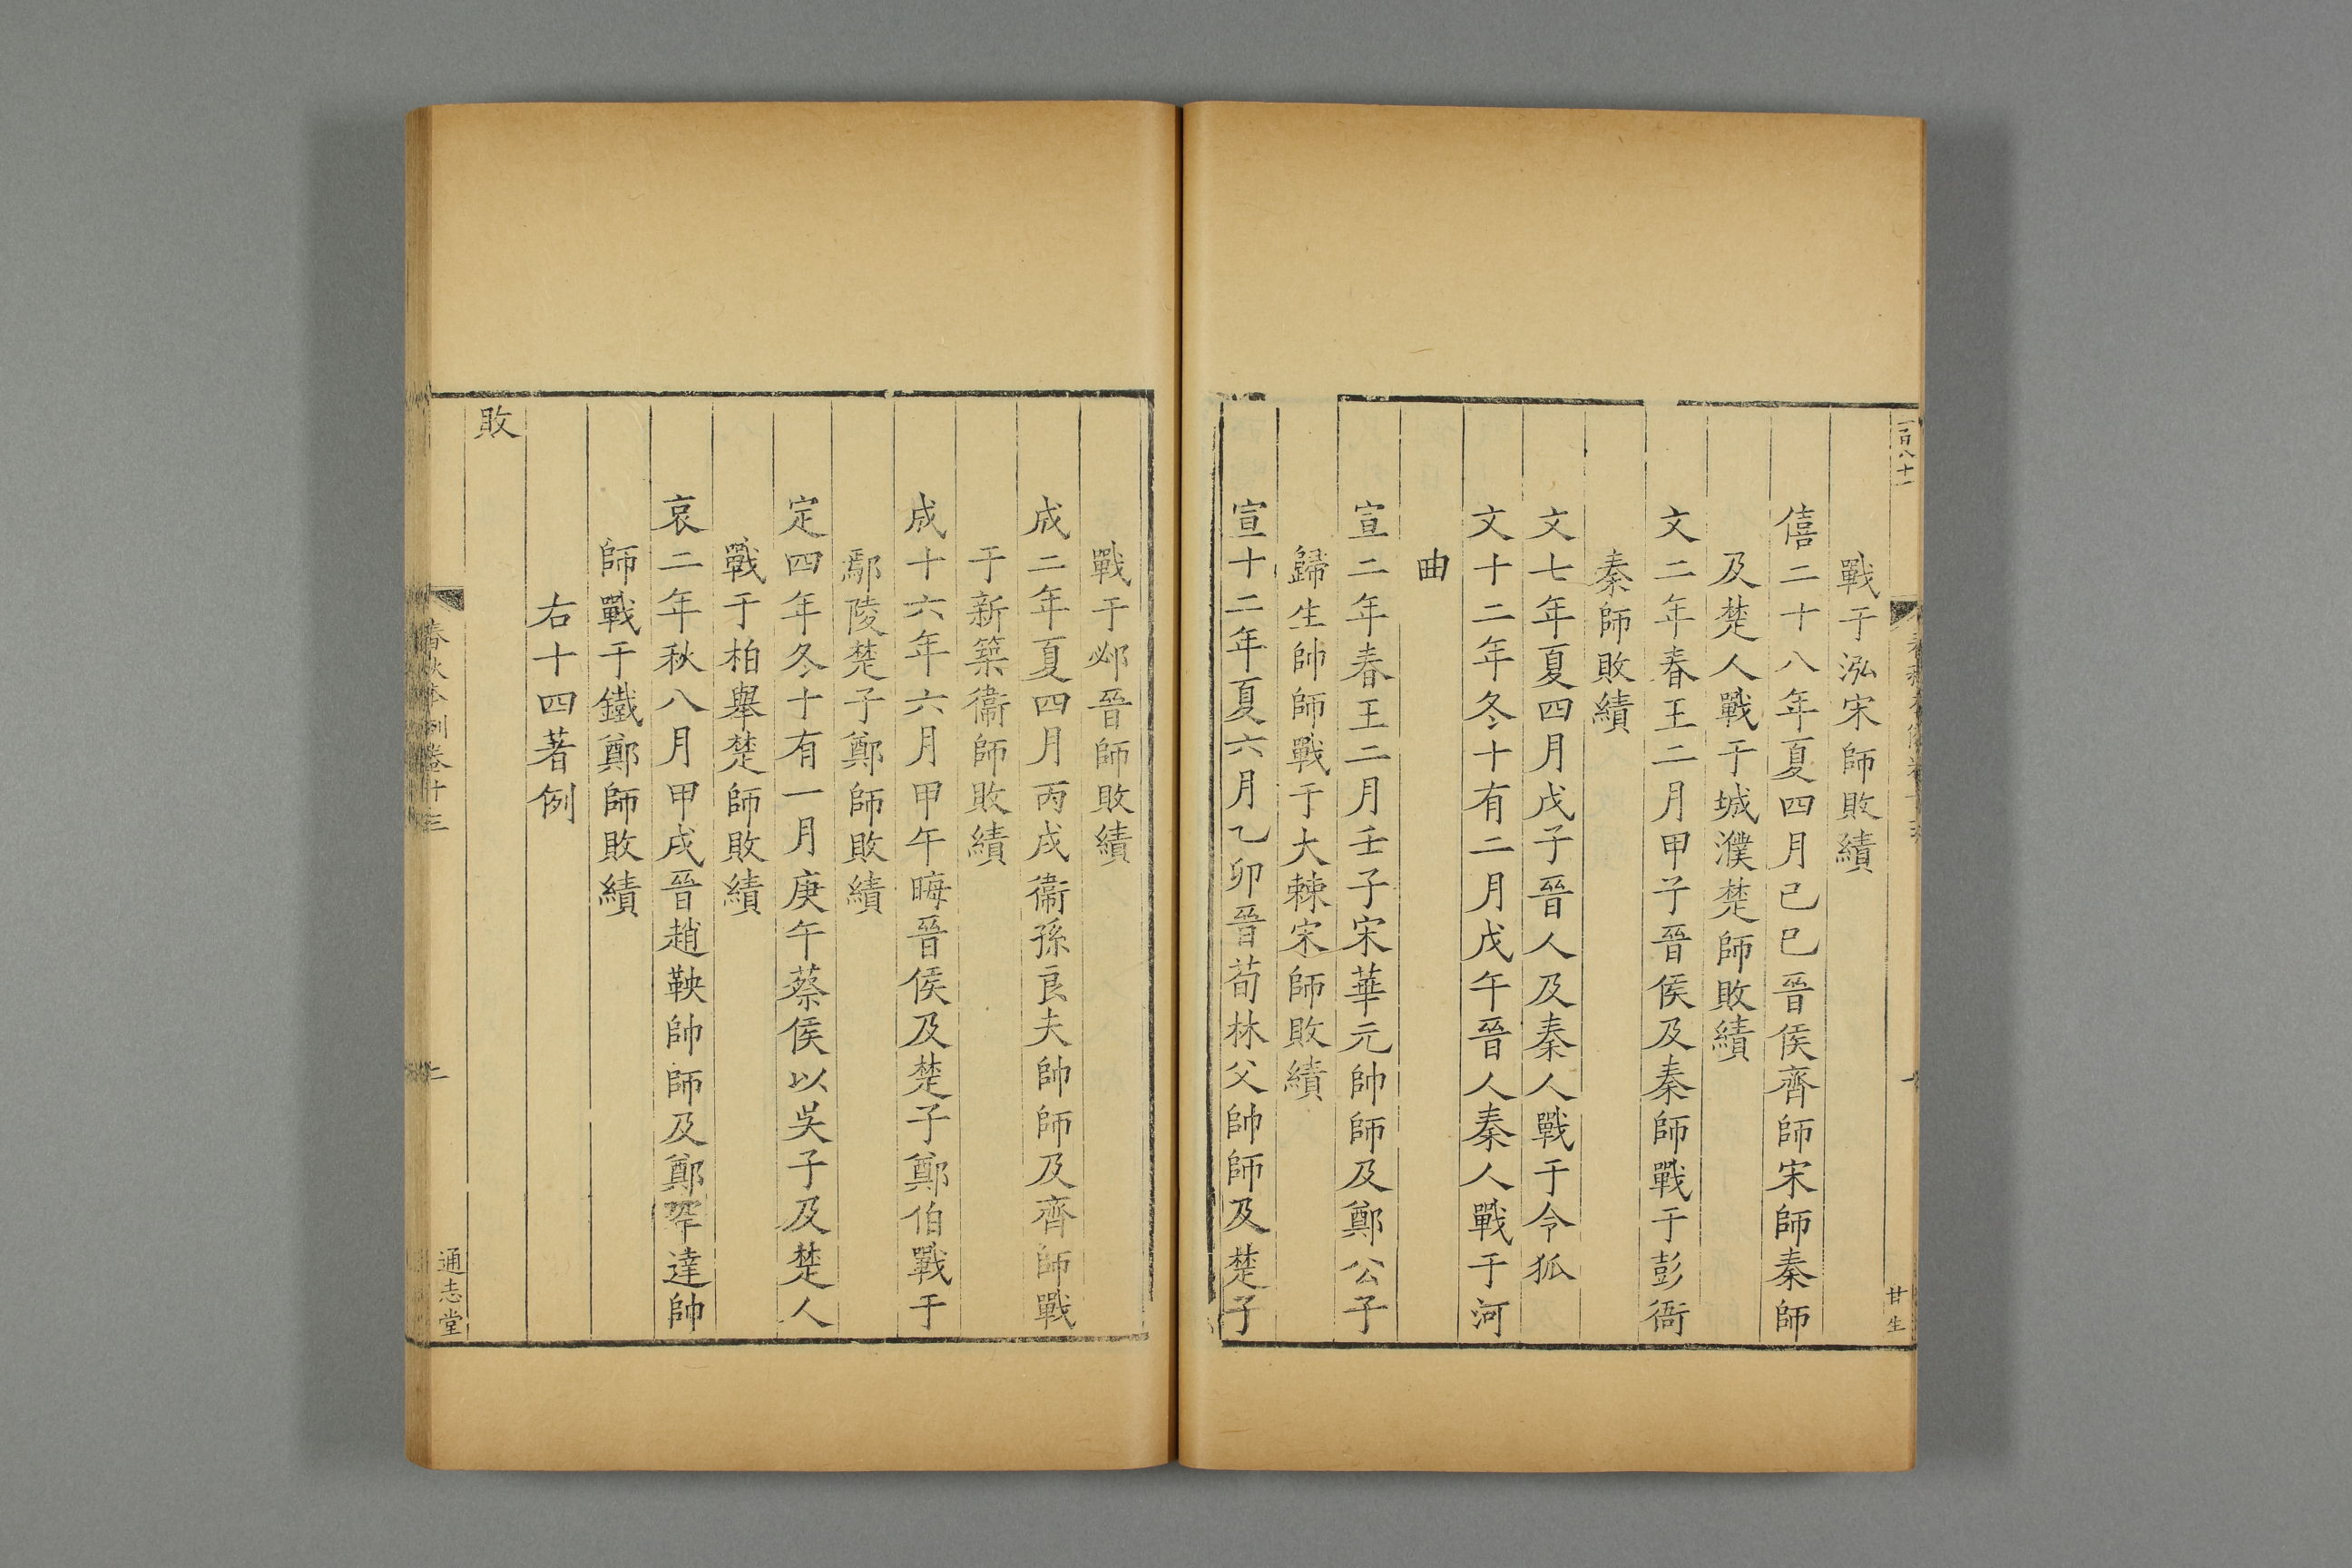 一百八十一
甘生
戰于泓宋師敗績
僖二十八年夏四月己巳晉侯齊師宋師秦師
及楚人戰于城濮楚師敗績
文二年春王二月甲子晉侯及秦師戰于彭衙
秦師敗績
文七年夏四月戊子晉人及秦人戰于令狐
文十二年冬十有二月戊午晉人秦人戰于河
曲
宣二年春王二月壬子宋華元帥師及鄭公子
歸生帥師戰于大棘宋師敗績
宣十二年夏六月乙卯晉荀林父帥師及楚子
戰于邲晉師敗績
成二年夏四月丙戌衞孫良夫帥師及齊師戰
于新築衞師敗績
成十六年六月甲午晦晉侯及楚子鄭伯戰于
鄢陵楚子鄭師敗績
定四年冬十有一月庚午蔡侯以吳子及楚人
戰于柏舉楚師敗績
哀二年秋八月甲戌晉趙鞅帥師及鄭罕達帥
師戰于鐵鄭師敗績
右十四著例
敗
春秋本例卷十三
通志堂